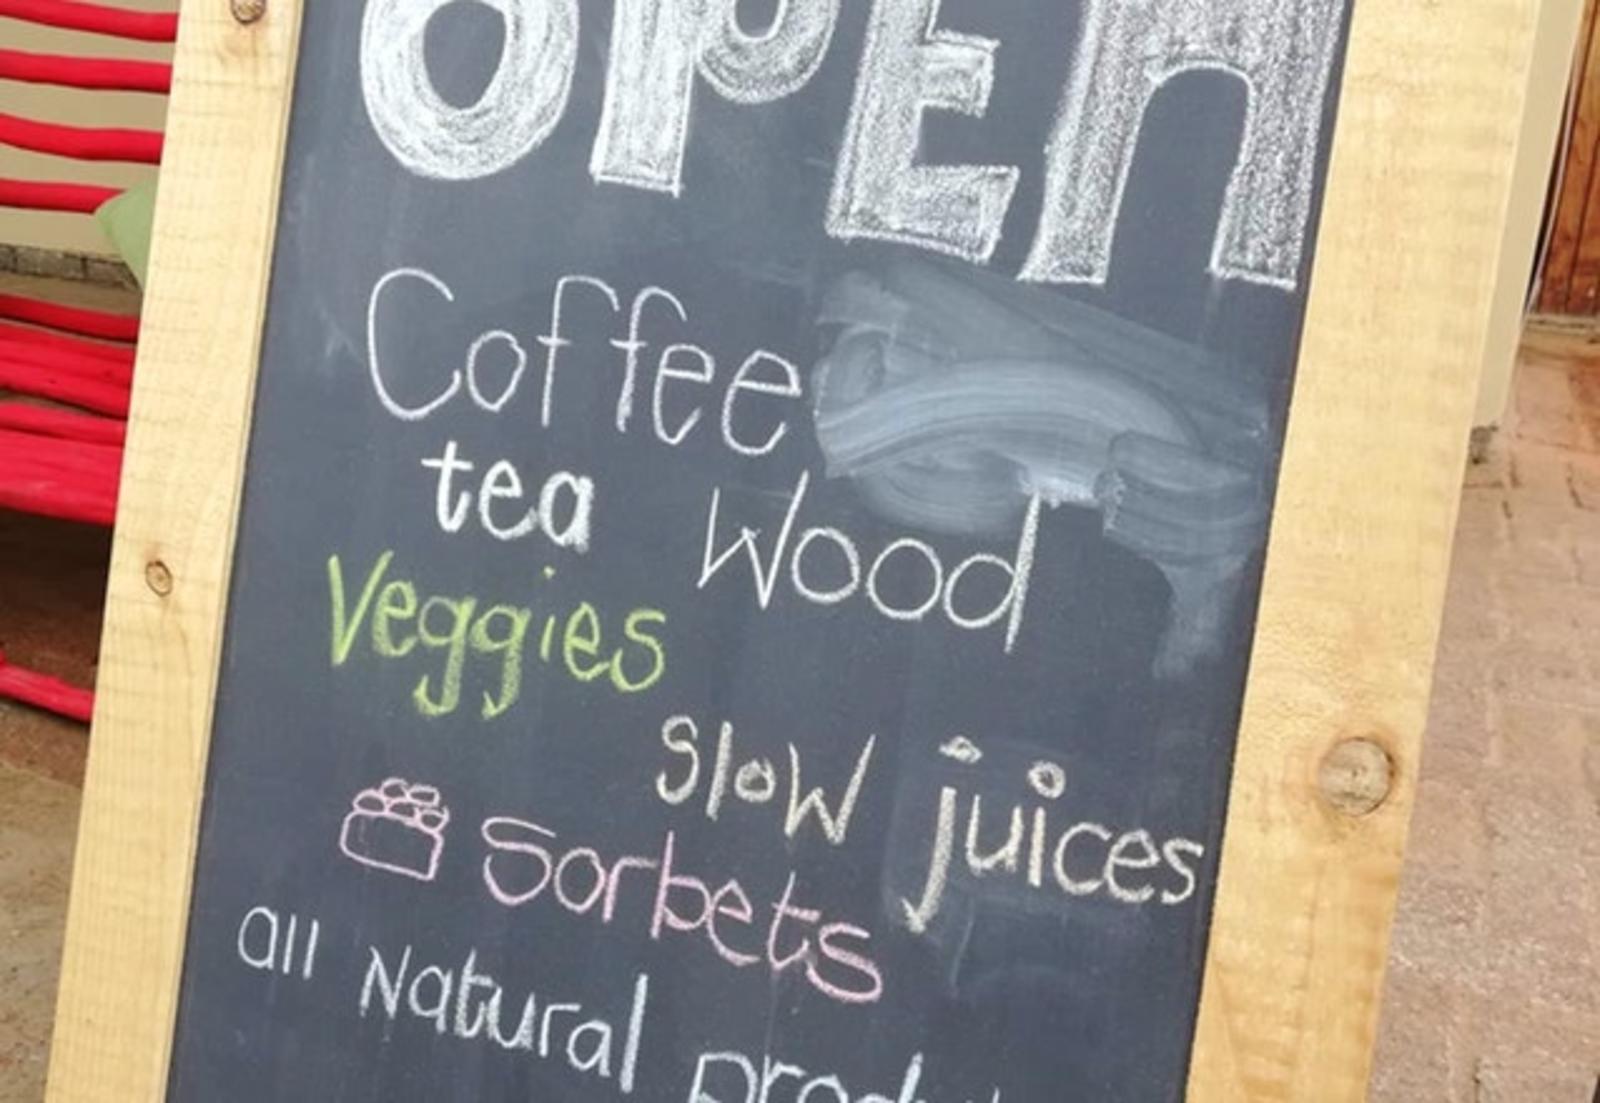 OPEN
Coffee
tea Wood
Veggies
Slow juices
Sorbets
all Natural